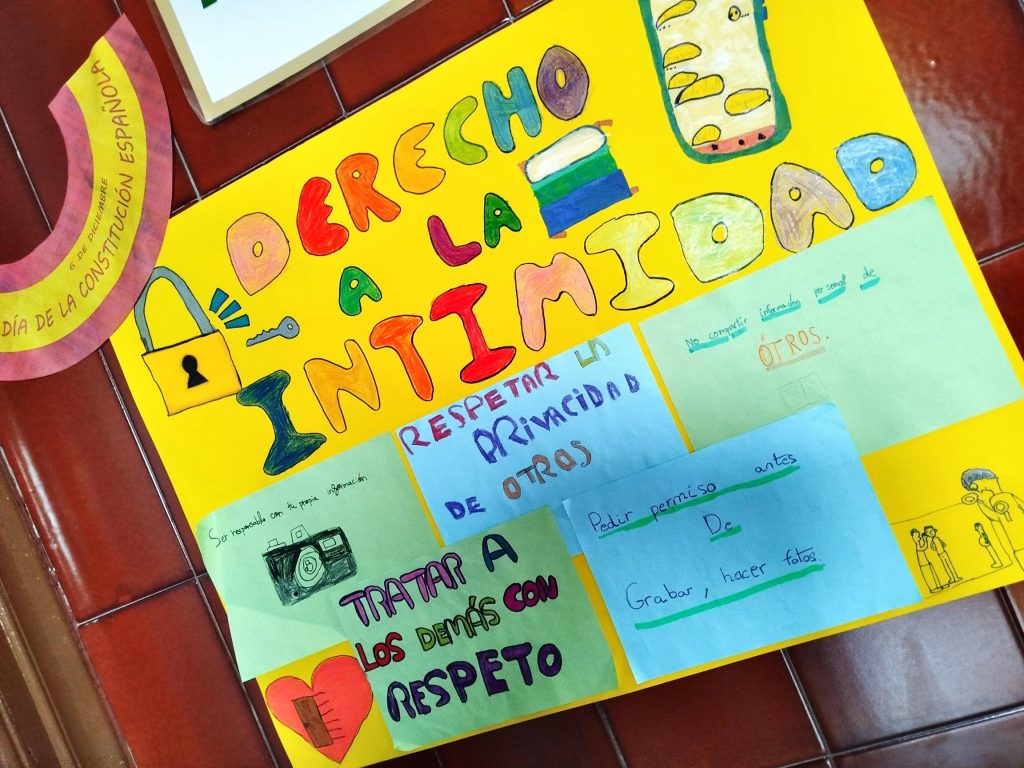 6 DE DICIEMBRE
DÍA DE LA CONSTITUCIÓN ESPAÑOLA
DERECHO
A LA
INTIMIDAD
No compartir información personal de
ÓTROS.
RESPETAR LA
PRIVACIDAD
DE OTROS
Ser responsable con tu propia información
Pedir permiso antes
De
Grabar, hacer fotos.
TRATAR A
LOS DEMÁS CON
RESPETO